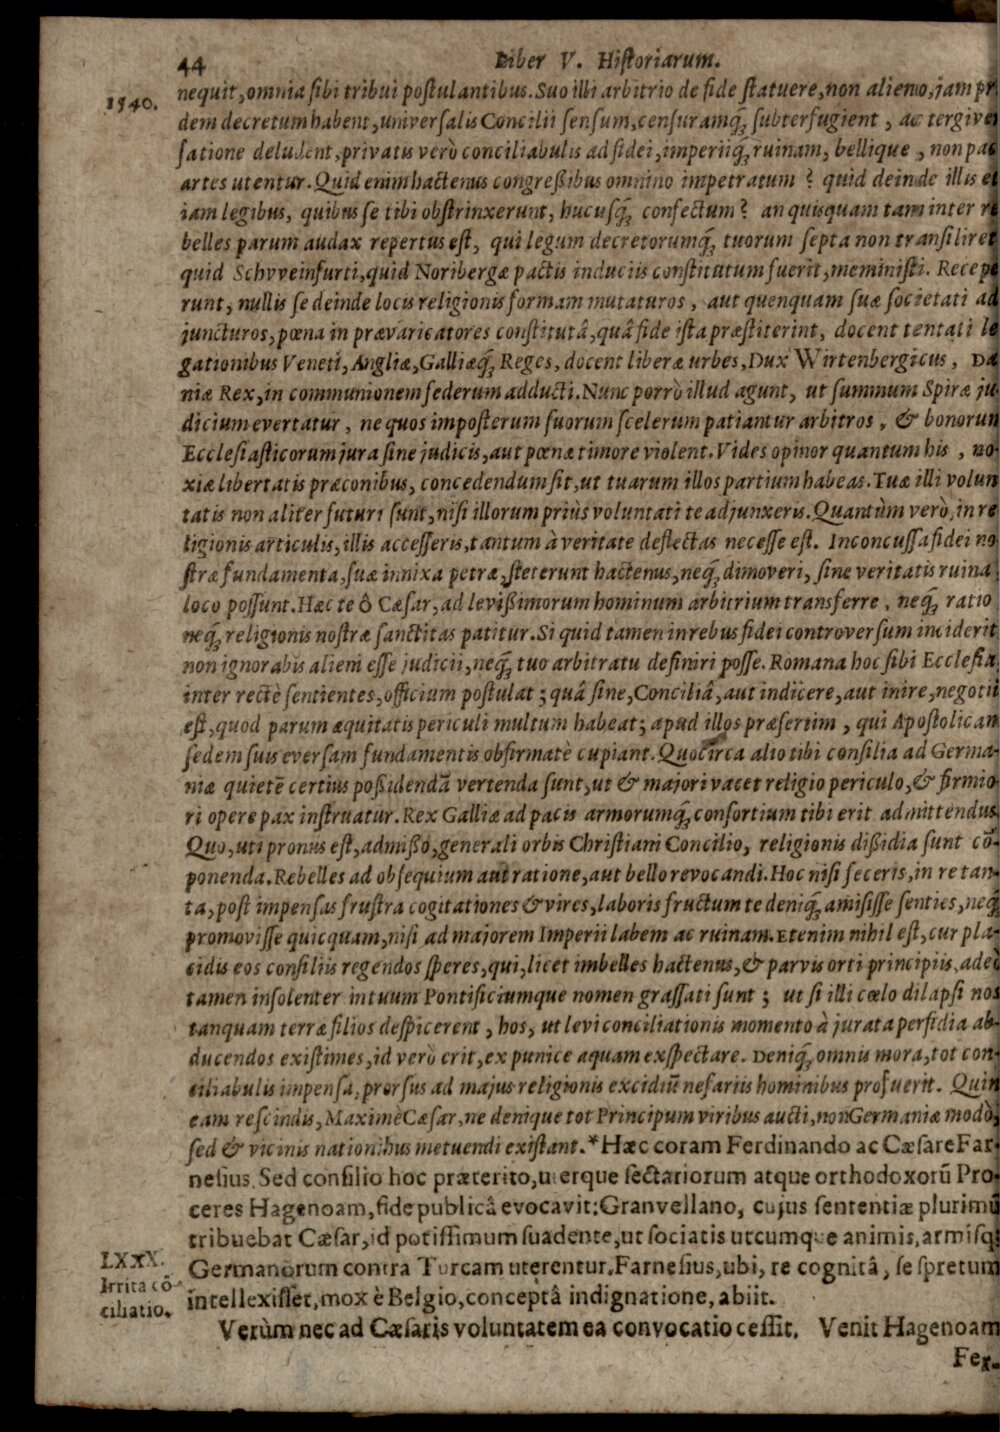 44 Liber V. Historiarum.
1540.
nequit, omnia sibi tribui postulantibus. Suo illi arbitrio de fide statuere, non alieno, jam pr
dem decretum habent, universalis Concilii sensum, censuramq; subterfugient, ac tergiver
satione deludent, privatis verò conciliabulis ad fidei, imperiiq; ruinam, bellique, non pac
artes utentur. Quid enim hactenus congreßibus omnino impetratum? quid deinde illis et
iam legibus, quibus se tibi obstrinxerunt, hucusq; confectum? an quisquam tam inter re
belles parum audax repertus est, qui legum decretorumq; tuorum septa non transiliret
quid Schvveinfurti, quid Noribergæ pactis induciis constitutum fuerit, meministi. Recepe
runt, nullis se deinde locis religionis formam mutaturos, aut quenquam suæ societati ad
juncturos, pœna in prævaricatores constitutâ, quâ fide ista præstiterint, docent tentati le
gationibus Veneti, Angliæ, Galliæq; Reges, docent liberæ urbes, Dux Wirtenbergicus, Da
niæ Rex, in communionem federum adducti. Nunc porrò illud agunt, ut summum Spiræ ju
dicium evertatur, ne quos imposterum suorum scelerum patiantur arbitros, & bonorun
Ecclesiasticorum jura sine judicis, aut pœnæ timore violent. Vides opinor quantum his, no-
xiæ libertatis præconibus, concedendum sit, ut tuarum illos partium habeas. Tuæ illi volun
tatis non aliter futuri sunt, nisi illorum priùs voluntati te adjunxeris. Quantùm verò, in re
ligionis articulis, illis accesseris, tantum à veritate deflectas necesse est. Inconcussa fidei no
stræ fundamenta, suæ innixa petræ, steterunt hactenus, neq; dimoveri, sine veritatis ruina
loco possunt. Hæc te ô Cæsar, ad levißimorum hominum arbitrium transferre, neq; ratio
neq; religionis nostræ sanctitas patitur. Si quid tamen in rebus fidei controversum inciderit
non ignorabis alieni esse judicii, neq; tuo arbitratu definiri posse. Romana hoc sibi Ecclesia
inter rectè sentientes, officium postulat; quâ sine, Conciliâ, aut indicere, aut inire, negotii
est, quod parum æquitatis periculi multum habeat; apud illos præsertim, qui Apostolican
sedem suis eversam fundamentis obfirmatè cupiant. Quocirca alio tibi consilia ad Germa-
niæ quietē certius poßidendā vertenda sunt, ut & majori vacet religio periculo, & firmio
ri opere pax instruatur. Rex Galliæ ad pacis armorumq; consortium tibi erit admittendus.
Quo, uti pronus est, admißo, generali orbis Christiani Concilio, religionis dißidia sunt cō-
ponenda. Rebelles ad obsequium aut ratione, aut bello revocandi. Hoc nisi feceris, in re tan-
ta, post impensas frustra cogitationes & vires, laboris fructum te deniq; amisisse senties, neq;
promovisse quicquam, nisi ad majorem Imperii labem ac ruinam. Etenim nihil est, cur pla-
cidis eos consiliis regendos speres, qui, licet imbelles hactenus, & parvis orti principiis, adeò
tamen insolenter in tuum Pontificiumque nomen grassati sunt; ut si illi cœlo dilapsi nos
tanquam terræ filios despicerent, hos, ut levi conciliationis momento à jurata perfidia ab-
ducendos existimes, id verò erit, ex punice aquam exspectare. Deniq; omnis mora, tot con-
ciliabulis impensa, prorsus ad majus religionis excidiū nefariis hominibus profuerit. Quin
eam rescindis, Maximè Cæsar, ne denique tot Principum viribus aucti, non Germaniæ modò,
sed & vicinis nationibus metuendi existant.* Hæc coram Ferdinando ac Cæsare Far-
nesius. Sed consilio hoc præterito, uterque sectariorum atque orthodoxorū Pro-
ceres Hagenoam, fide publicâ evocavit: Granvellano, cujus sententiæ plurimū
tribuebat Cæsar, id potissimum suadente, ut sociatis utcumque animis, armisq;
Germanorum contra Turcam uterentur. Farnesius, ubi, re cognitâ, se spretum
intellexisset, mox è Belgio, conceptâ indignatione, abiit.
LXXX.
Irrita cō-
ciliatio.
Verùm nec ad Cæsaris voluntatem ea convocatio cessit. Venit Hagenoam
Fer-